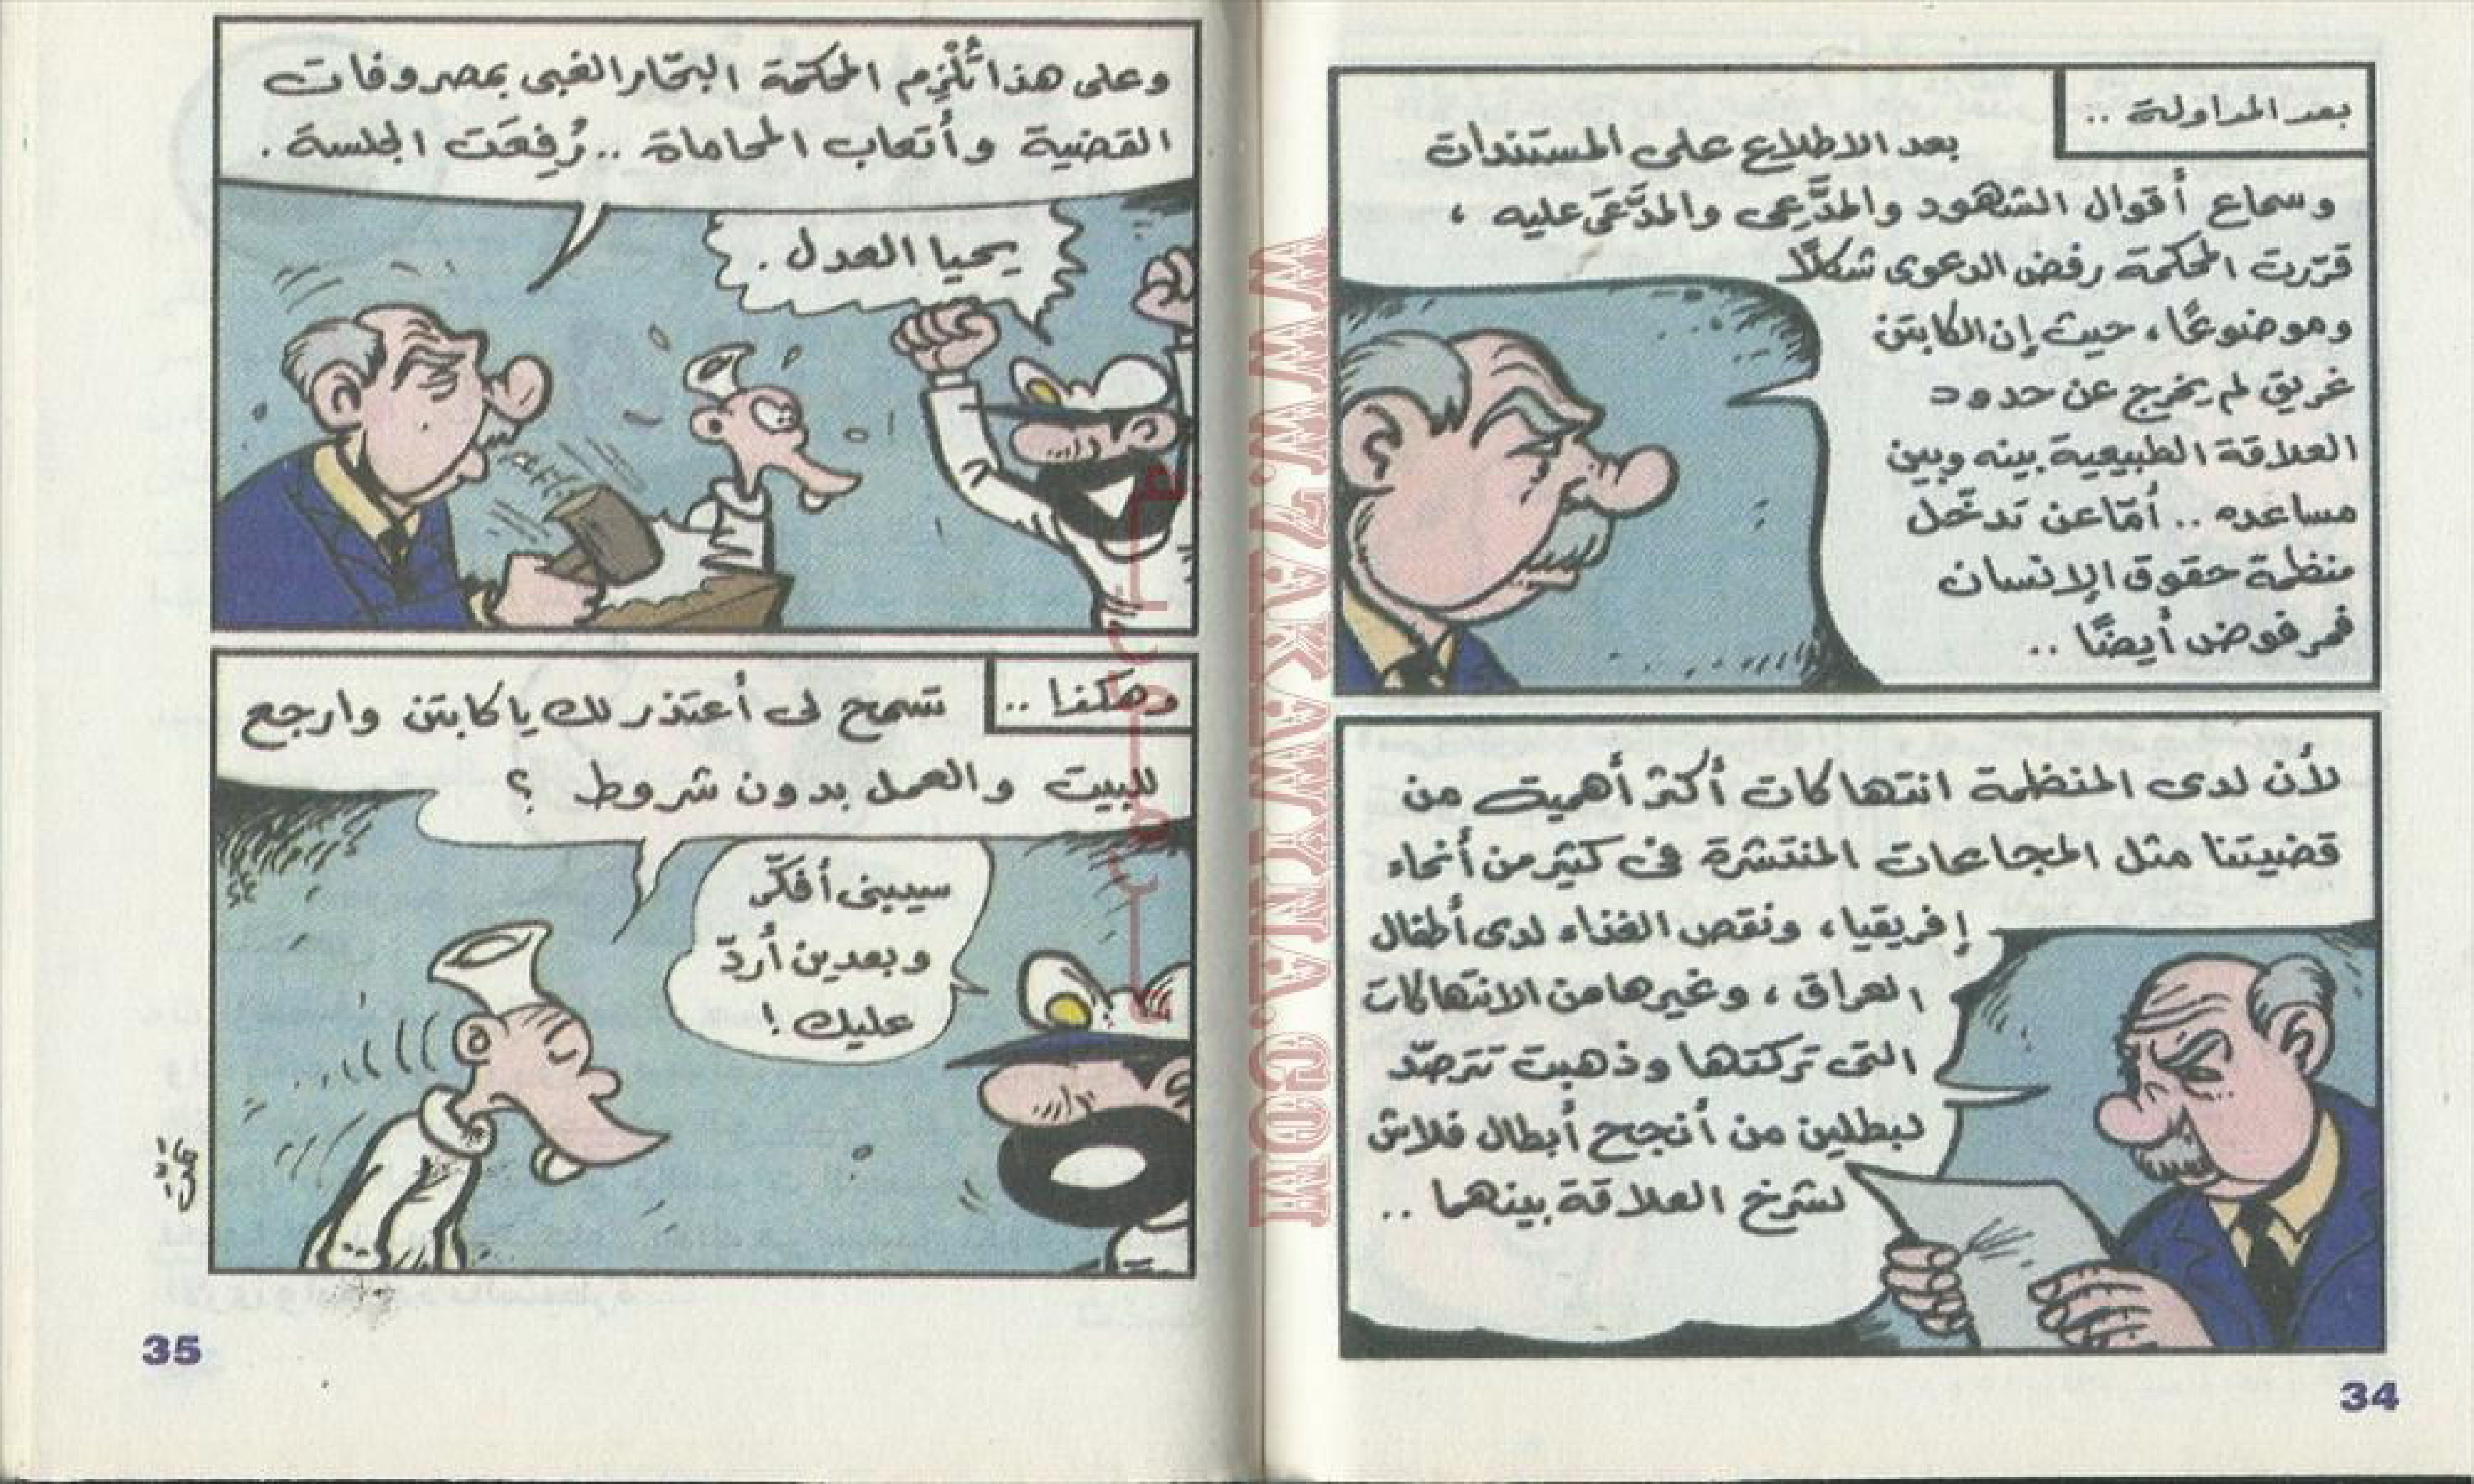 بعد المداولة ..
بعد الاطلاع على المستندات
وسماع أقوال الشهود والمدَّعِى والمدَّعَى عليه ،
قرّرت المحكمة رفض الدعوى شكلًا
وموضوعًا ، حيث إن الكابتن
غريق لم يخرج عن حدود
العلاقة الطبيعية بينه وبين
مساعده .. أمّا عن تدخّل
منظمة حقوق الإنسان
فمرفوض أيضًا ..
لأن لدى المنظمة انتهاكات أكثر أهمية من
قضيتنا مثل المجاعات المنتشرة فى كثير من أنحاء
إفريقيا ، ونقص الغذاء لدى أطفال
العراق ، وغيرها من الانتهاكات
التى تركتها وذهبت تترصّد
لبطلين من أنجح أبطال فلاش
لشرخ العلاقة بينهما ..
34
وعلى هذا تُلْزِم المحكمة البحّار الغبى بمصروفات
القضية وأتعاب المحاماة .. رُفِعَت الجلسة .
يحيا العدل .
وهكذا ..
تسمح لى أعتذر لك يا كابتن وارجع
للبيت والعمل بدون شروط ؟
سيبنى أفكّر
وبعدين أردّ
عليك !
35
WWW.ZAKAWYNAA.COM